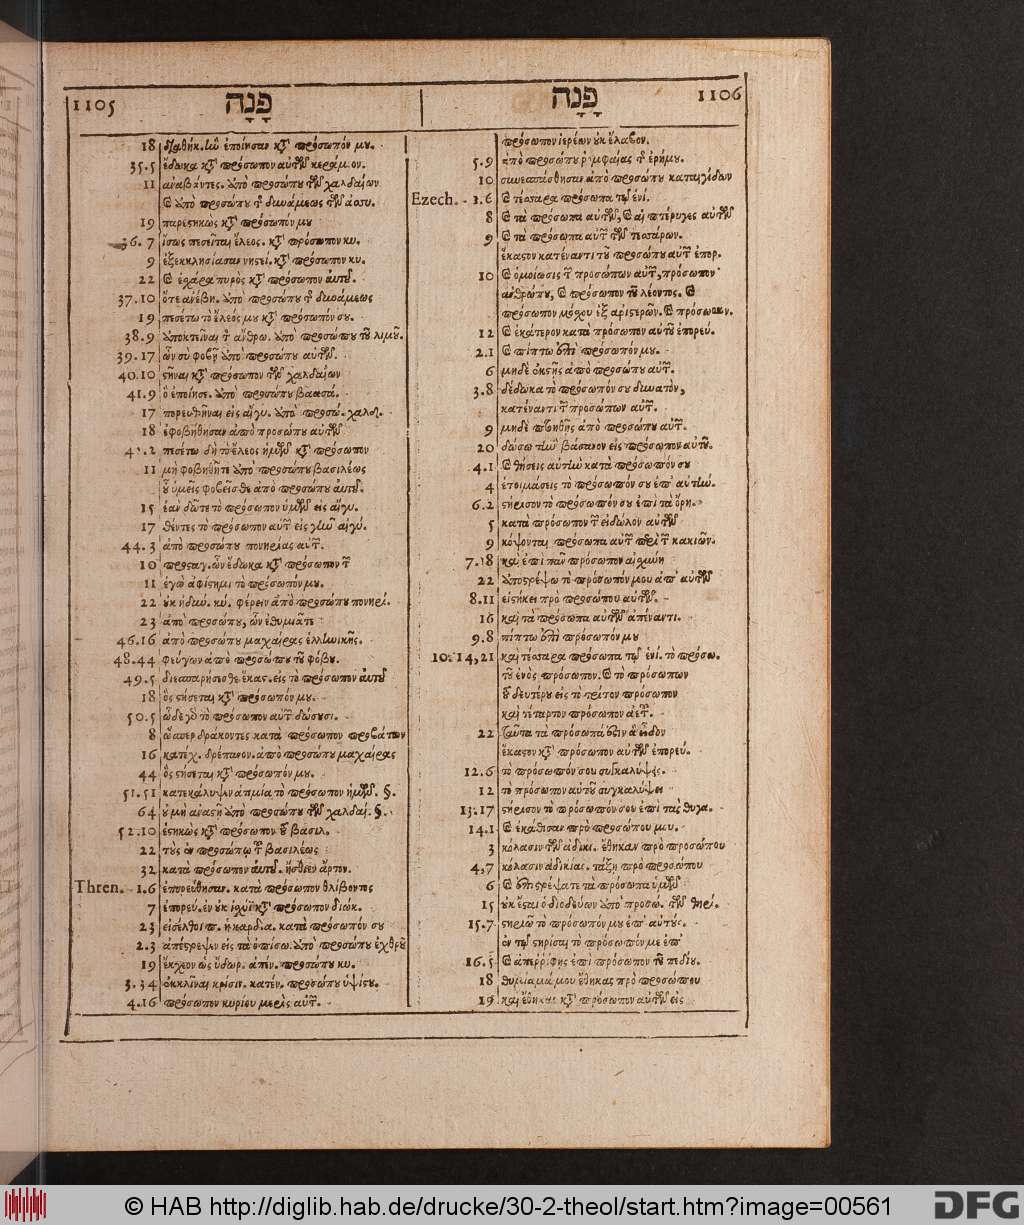 1105 פָּנָה
פָּנָה 1106
18 διαθήκην ἐποίησαν κατὰ πρόσωπόν μου.
35.5 ἔδωκα κατὰ πρόσωπον αὐτῶν κεράμιον.
11 ἀναβάντες. ὑπὸ προσώπου τῶν χαλδαίων
καὶ ὑπὸ προσώπου τῆς δυνάμεως τῶν ἀσσυ.
19 παρεστηκὼς κατὰ πρόσωπόν μου
36.7 ἴσως πεσεῖται ἔλεος. κατὰ πρόσωπον κυ.
9 ἐξεκκλησίασαν νηστεί. κατὰ πρόσωπον κυ.
22 καὶ ἐσχάρα πυρὸς κατὰ πρόσωπον αὐτοῦ.
37.10 ὅτε ἀνέβη. ὑπὸ προσώπου τῆς δυνάμεως
19 πεσέτω τὸ ἔλεός μου κατὰ πρόσωπόν σου.
38.9 ὑποκτεῖναι τὸν ἄνθρω. ὑπὸ προσώπου τοῦ λιμοῦ.
39.17 ὧν σὺ φοβῇ ὑπὸ προσώπου αὐτῶν.
40.10 στῆναι κατὰ πρόσωπον τῶν χαλδαίων
41.9 ὃ ἐποίησε. ὑπὸ προσώπου βαασά.
17 πορευθῆναι εἰς αἴγυ. ὑπὸ προσώ. χαλδ.
18 ἐφοβήθησαν ἀπὸ προσώπου αὐτῶν
.2 πεσέτω δὴ τὸ ἔλεος ἡμῶν κατὰ πρόσωπον
11 μὴ φοβηθῆτε ὑπὸ προσώπου βασιλέως
οὗ ὑμεῖς φοβεῖσθε ἀπὸ προσώπου αὐτοῦ.
15 ἐὰν δῶτε τὸ πρόσωπον ὑμῶν εἰς αἴγυ.
17 θέντες τὸ πρόσωπον αὐτῶν εἰς γῆν αἰγύ.
44.3 ἀπὸ προσώπου πονηρίας αὐτῶν.
10 προσταγ. ὧν ἔδωκα κατὰ πρόσωπον τῶν
11 ἐγὼ ἀφίστημι τὸ πρόσωπόν μου.
22 οὐκ ἠδύν. κύ. φέρειν ἀπὸ προσώπου πονηρί.
23 ἀπὸ προσώπου, ὧν ἐθυμιᾶτε
46.16 ἀπὸ προσώπου μαχαίρας ἑλληνικῆς.
48.44 φεύγων ἀπὸ προσώπου τοῦ φόβου.
49.5 διασπαρήσεσθε ἕκας. εἰς τὸ πρόσωπον αὐτοῦ
18 ὃς στήσεται κατὰ πρόσωπόν μου.
50.5 ὧδε γὰρ τὸ πρόσωπον αὐτῶν δώσουσι.
8 ὥσπερ δράκοντες κατὰ πρόσωπον προβάτων
16 κατέχ. δρέπανον. ἀπὸ προσώπου μαχαίρας
44 ὃς στήσεται κατὰ πρόσωπόν μου.
51.51 κατεκάλυψεν ἀτιμία τὸ πρόσωπον ἡμῶν. §.
64 οὐ μὴ ἀναστῇ ὑπὸ προσώπου τῶν χαλδαί. §.
52.10 ἑστηκὼς κατὰ πρόσωπον τοῦ βασιλ.
22 τοὺς ἐν προσώπῳ τοῦ βασιλέως
32 κατὰ πρόσωπον αὐτοῦ. ἤσθιεν ἄρτον.
Thren. 1.6 ἐπορεύθησαν. κατὰ πρόσωπον θλίβοντος
7 ἐπορεύ. ἐν οὐκ ἰσχύϊ κατὰ πρόσωπον διώκ.
23 εἰσέλθοι π. ἡ καρδ. α. κατὰ πρόσωπόν σου
2.3 ἀπέστρεψεν εἰς τὰ ὀπίσω. ὑπὸ προσώπου ἐχθροῦ
19 ἔκχεον ὡς ὕδωρ. ἀπέν. προσώπου κυ.
3.34 ἐκκλῖναι κρίσιν. κατέν. προσώπου ὑψίστου.
4.16 πρόσωπον κυρίου μερὶς αὐτῶν.
πρόσωπον ἱερέων οὐκ ἔλαβον.
5.9 ἀπὸ προσώπου ῥομφαίας τῆς ἐρήμου.
10 συνεσπάσθησαν ἀπὸ προσώπου καταιγίδων
Ezech. 1.6 καὶ τέσσαρα πρόσωπα τῷ ἑνί.
8 καὶ τὰ πρόσωπα αὐτῶν, καὶ αἱ πτέρυγες αὐτῶν
9 καὶ τὰ πρόσωπα αὐτῶν τῶν τεσσάρων.
ἕκαστον κατέναντι τοῦ προσώπου αὐτῶν ἐπορ.
10 καὶ ὁμοίωσις τῶν προσώπων αὐτῶν, πρόσωπον
ἀνθρώπου, καὶ πρόσωπον τοῦ λέοντος. καὶ
πρόσωπον μόσχου ἐξ ἀριστερῶν. καὶ πρόσωπον.
12 καὶ ἑκάτερον κατὰ πρόσωπον αὐτοῦ ἐπορεύ.
2.1 καὶ πίπτω ἐπὶ πρόσωπόν μου.
6 μηδὲ ἐκστῇς ἀπὸ προσώπου αὐτῶν.
3.8 δέδωκα τὸ πρόσωπόν σου δυνατὸν,
κατέναντι τῶν προσώπων αὐτῶν.
9 μηδὲ πτοηθῇς ἀπὸ προσώπου αὐτῶν.
20 δώσω τὴν βάσανον εἰς πρόσωπον αὐτοῦ.
4.1 καὶ θήσεις αὐτὴν κατὰ πρόσωπόν σου
4 ἑτοιμάσεις τὸ πρόσωπόν σου ἐπ' αὐτήν.
6.2 στήρισον τὸ πρόσωπόν σου ἐπὶ τὰ ὄρη.
5 κατὰ πρόσωπον τῶν εἰδώλων αὐτῶν
9 κόψονται πρόσωπα αὐτῶν περὶ τῶν κακιῶν.
7.18 καὶ ἐπὶ πᾶν πρόσωπον αἰσχύνη
22 ὑποστρέψω τὸ πρόσωπόν μου ἀπ' αὐτῶν
8.11 εἱστήκει πρὸ προσώπου αὐτῶν.
16 καὶ τὰ πρόσωπα αὐτῶν ἀπέναντι.
9.8 πίπτω ἐπὶ πρόσωπόν μου
10.14,21 καὶ τέσσαρα πρόσωπα τῷ ἑνί. τὸ πρόσω.
τοῦ ἑνὸς πρόσωπον. καὶ τὸ πρόσωπων
τοῦ δευτέρου εἰς τὸ τρίτον πρόσωπον
καὶ τέταρτον πρόσωπον ἀετοῦ.
22 ταῦτα τὰ πρόσωπά ἐστιν ἃ εἶδον
ἕκαστον κατὰ πρόσωπον αὐτῶν ἐπορεύ.
12.6 τὸ πρόσωπόν σου συγκαλύψεις.
12 τὸ πρόσωπον αὐτοῦ συγκαλύψει
13.17 στήρισον τὸ πρόσωπόν σου ἐπὶ τὰς θυγα.
14.1 καὶ ἐκάθισαν πρὸ προσώπου μου.
3 κόλασιν τῶν ἀδικι. ἔθηκαν πρὸ προσώπου
4,7 κόλασιν ἀδικίας. τάξῃ πρὸ προσώπου
6 καὶ ἐπιστρέψατε τὰ πρόσωπα ὑμῶν
15 οὐκ ἔσται ὁ διοδεύων ὑπὸ προσώ. τῶν θηρί.
15.7 στηριῶ τὸ πρόσωπόν μου ἐπ' αὐτούς.
ἐν τῷ στηρίσαι τὸ πρόσωπόν με ἐπ'
16.5 καὶ ἀπερρίφης ἐπὶ πρόσωπον τοῦ πεδίου.
18 θυμίαμά μου ἔθηκας πρὸ προσώπου
19 καὶ ἔθηκας κατὰ πρόσωπον αὐτῶν εἰς
© HAB http://diglib.hab.de/drucke/30-2-theol/start.htm?image=00561
DFG